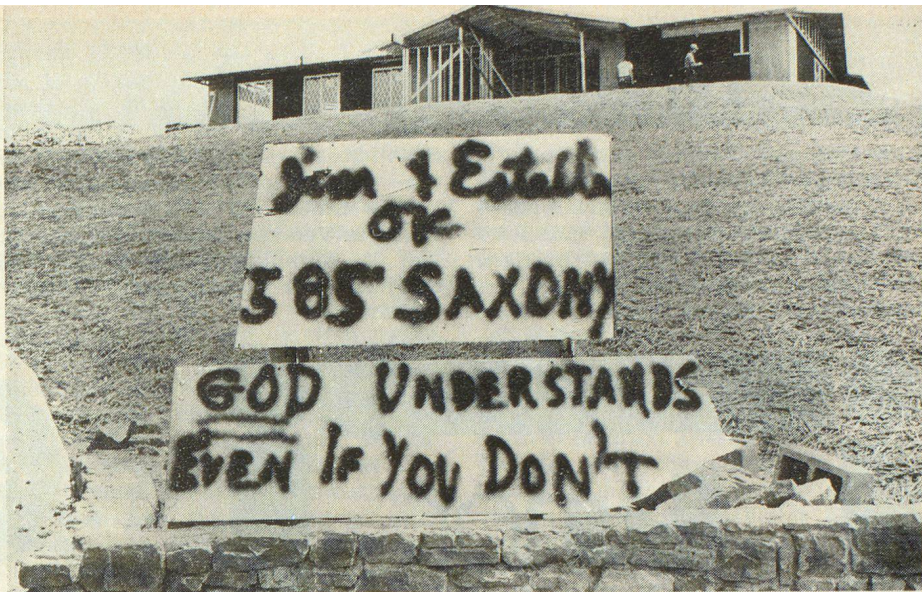 Jim & Estelle
OK
385 SAXONY
GOD UNDERSTANDS
EVEN IF YOU DON'T